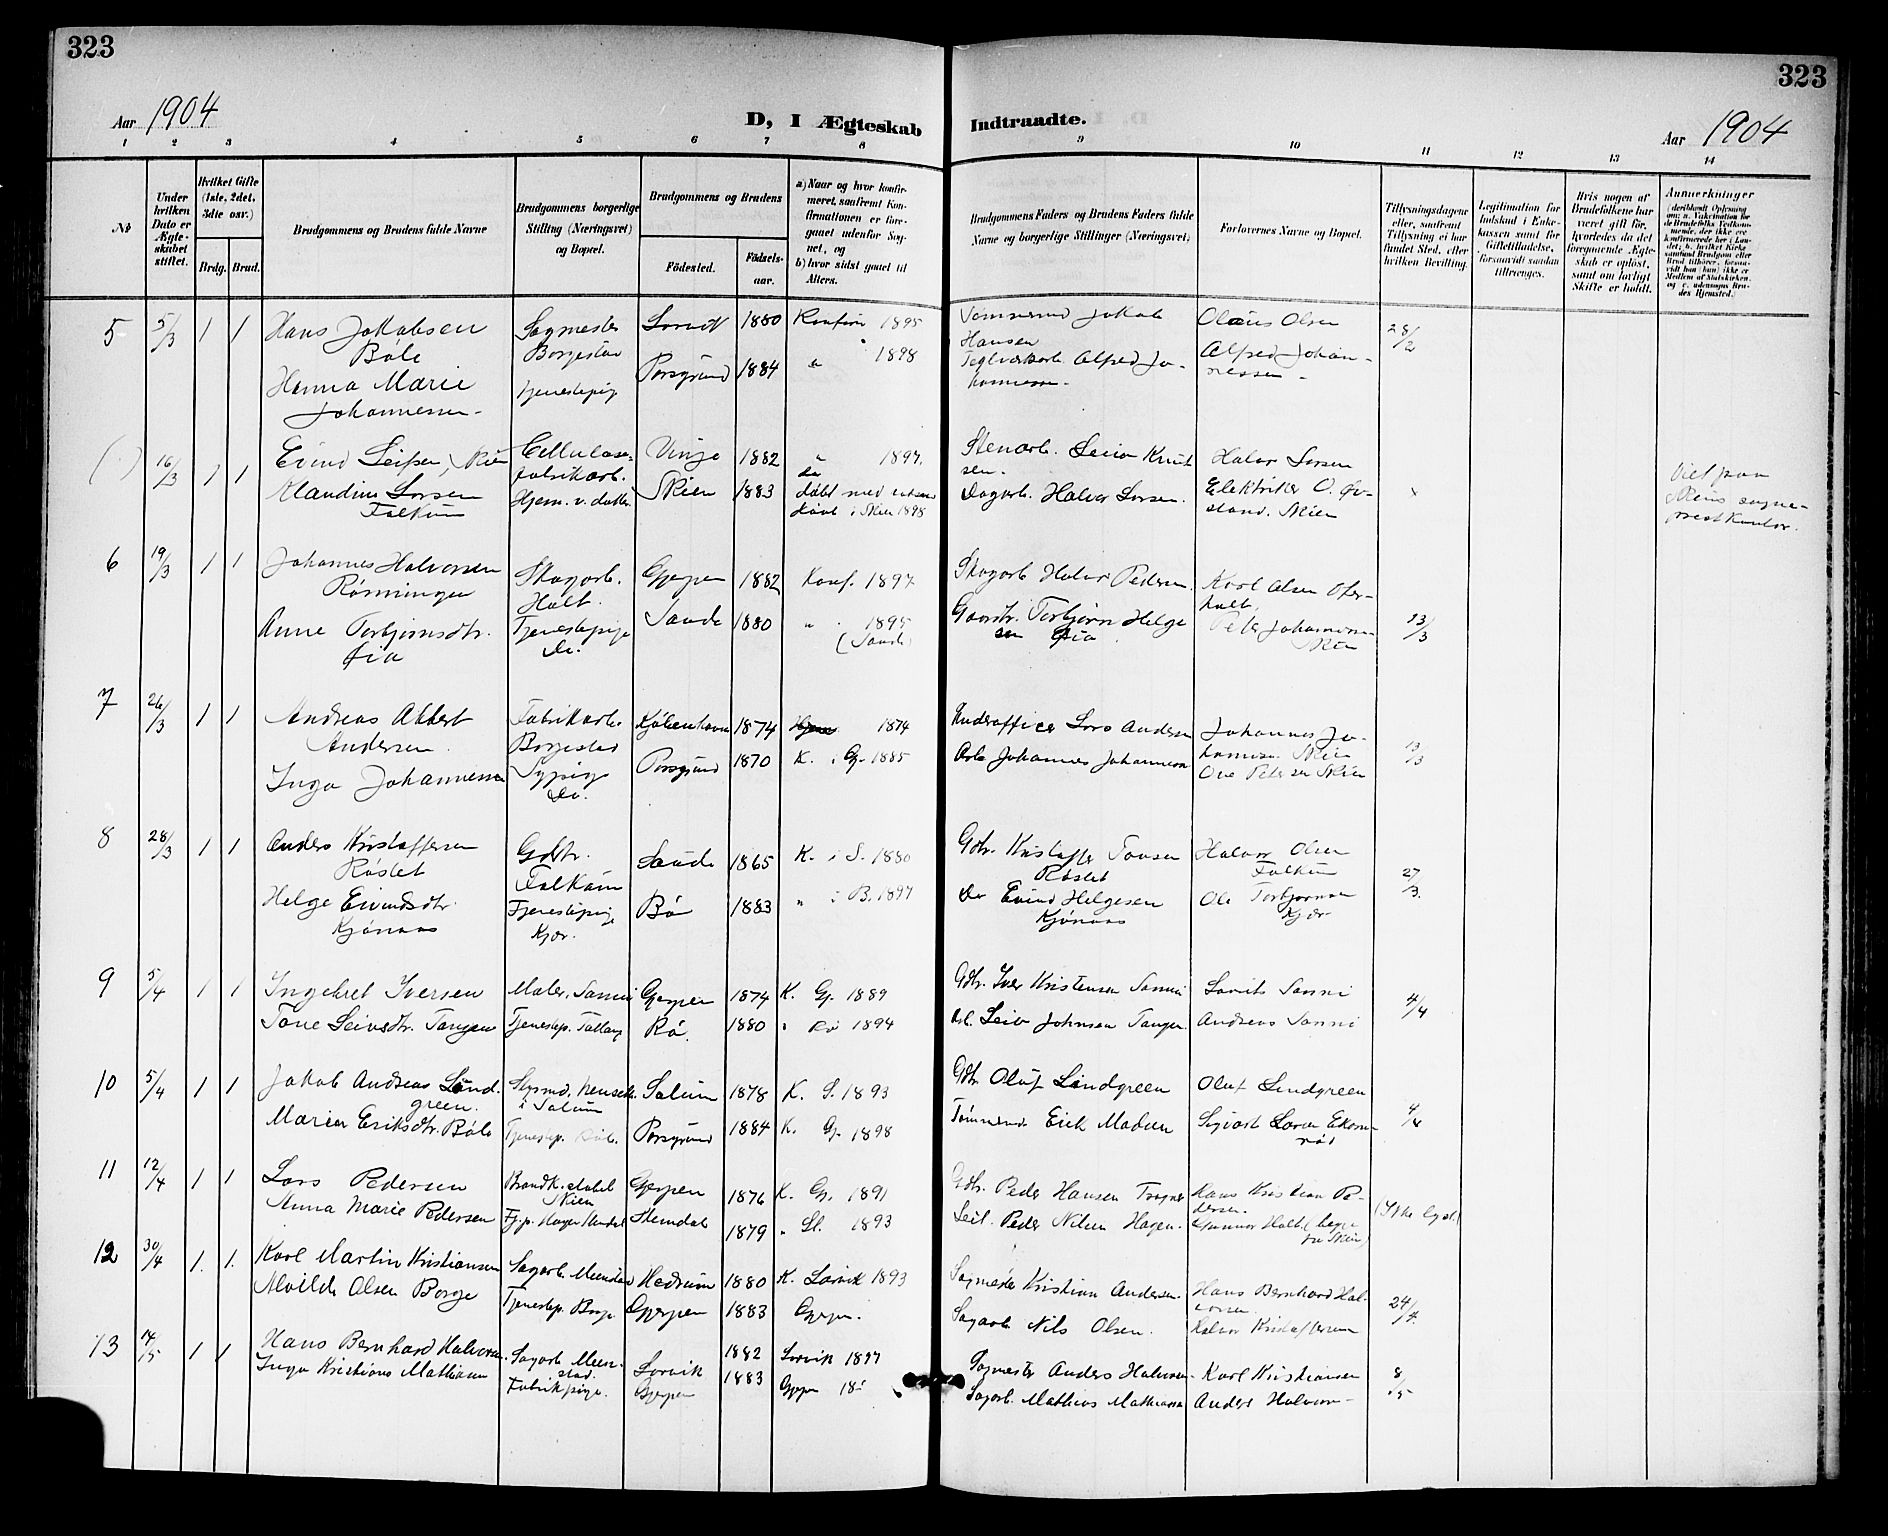 323
323
Aar 1904
D, I Ægteskab
Indtraadte.
Aar 1904
1 2 3 4 5 6 7 8 9 10 11 12 13 14
No
Under hvilken Dato er Ægteskabet stiftet.
Hvilket Gifte (1ste, 2det, 3die osv.)
Brdg. Brud.
Brudgommens og Brudens fulde Navne
Brudgommens borgerlige Stilling (Næringsvei) og Bopæl.
Brudgommens og Brudens
Fødested.
Fødselsaar.
a) Naar og hvor konfirmeret, saafremt Konfirmationen er foregaaet udenfor Sognet, og
b) hvor sidst gaaet til Alters.
Brudgommens Faders og Brudens Faders fulde Navne og borgerlige Stillinger (Næringsvei)
Forlovernes Navne og Bopæl.
Tillysningsdagene eller, saafremt Tillysning ei har fundet Sted, efter hvilken Bevilling.
Legitimation for Indskud i Enkekassen samt for Giftetilladelse, forsaavidt saadan tiltrænges.
Hvis nogen af Brudefolkene har været gift før, hvorledes da det foregaaende Ægteskab er opløst, samt om lovligt Skifte er holdt.
Anmerkninger
5 5/3 1 1 Hans Jakobsen Sagmester 1880 Konfirm 1895 Tømmermd Jakob Olaus Olsen 28/2
Bøle Borgestad Hansen
Hanna Marie Tjenestepig Porsgrund 1884 " 1898 Teglverksarb. Alfred Jo- Alfred Johan-
Johannessen hannessen nessen
16/3 1 1 Eivind Leifsen, Skien Cellulose- Vinje 1882 " 1897. Stenarb. Leiv Knut Halvor Larsen
fabrikarb. sen.
Klaudine Larsen Hjem. v. datter Skien 1883 døbt Dagarb. Halvor Larsen. Elektriker O. Øv-
Falkum i Skien 1898 land. Skien
Viet paa Skiens sogneprestkontor.
6 19/3 1 1 Johannes Halvorsen Skogarb. Gjerpen 1882 Konf. 1897 Skogarb Halvor Pedersen Karl Olsen
Rønningen Holt.
Anne Torbjørnsdtr. Tjenestepige Saude 1880 " 1895 Gaardbr. Torbjørn Helge Peder Johannesen 13/3
Lia Do. (Saude) sen Lia Skien
7 26/3 1 1 Andreas Albert Fabrikarb. Kjøbenhavn 1874 1874 Underofficer Lars Andersen Johannes Jo-
Andersen. Borgestad hannesen Skien
Inga Johannessen Sypige Porsgrund 1870 K. i Gj. 1885 Arb. Johannes Johannesen Ole Petersen Skien 13/3
Do.
8 28/3 1 1 Anders Kristoffersen Gdbr. Saude 1865 K. i S. 1880 Gdbr. Kristoffer Tovsen Halvor Olsen
Røslet Falkum Røslet Falkum 27/3.
Helge Eivindsdtr. Tjenestepige Bø 1883 " i B. 1897 Do Eivind Helgesen Ole Torbjørnsen
Kjønaas Kjær. Kjønaas Kjær
9 5/4 1 1 Ingebret Iversen Maler, Sanni Gjerpen 1874 K. Gj. 1889 Gdbr. Iver Kristensen Sanni Lavrits Sanni 4/4
Tone Leivsdtr. Tangen Tjenestep. Bø. 1880 " Bø 1894 Leiv Johnsen Tangen. Andreas Sanni
10 5/4 1 1 Jakob Andreas Lind- Solum 1878 K. S. 1893 Gdbr. Oluf Lindgreen Oluf Lindgreen
green. i Solum
Maren Eriksdtr. Bøle Tjenestep. Bøle. Porsgrund 1884 K. Gj. 1898 Tømmermd. Erik Madsen Sigvart Larsen 4/4
11 12/4 1 1 Lars Pedersen Brandkonstabel Gjerpen 1876 K. Gj. 1891 Gdbr. Peder Hansen Hans Kristian Pe-
Skien dersen.
Anna Marie Pedersen Slemdal 1879 " Sl. 1893 Seil. Peder Nilsen Hagen. Gunnar Holt (begge
fra Skien) (Ikke lyst)
12 30/4 1. 1. Karl Martin Kristiansen Sagarb. Menstad Hedrum 1880 K. Larvik 1893 Sagmester Kristian Andersen. Hans Bernhard Hal-
vorsen
Alvilde Olsen Borge Tjenestep. Borge Gjerpen 1883 Gjerpen. Sagarb. Nils Olsen. Halvor Kristoffersen 24/4.
13 14/5 1 1 Hans Bernhard Halvorsen. Sagarb. Men- Larvik 1882 Larvik 1897 Sagmester Anders Halvorsen. Karl Kristiansen 8/5
stad.
Inga Kristiane Mathisen Fabrikpige. Gjerpen 1883 Gjerpen Sagarb. Mathias Mathiassen Anders Halvorsen